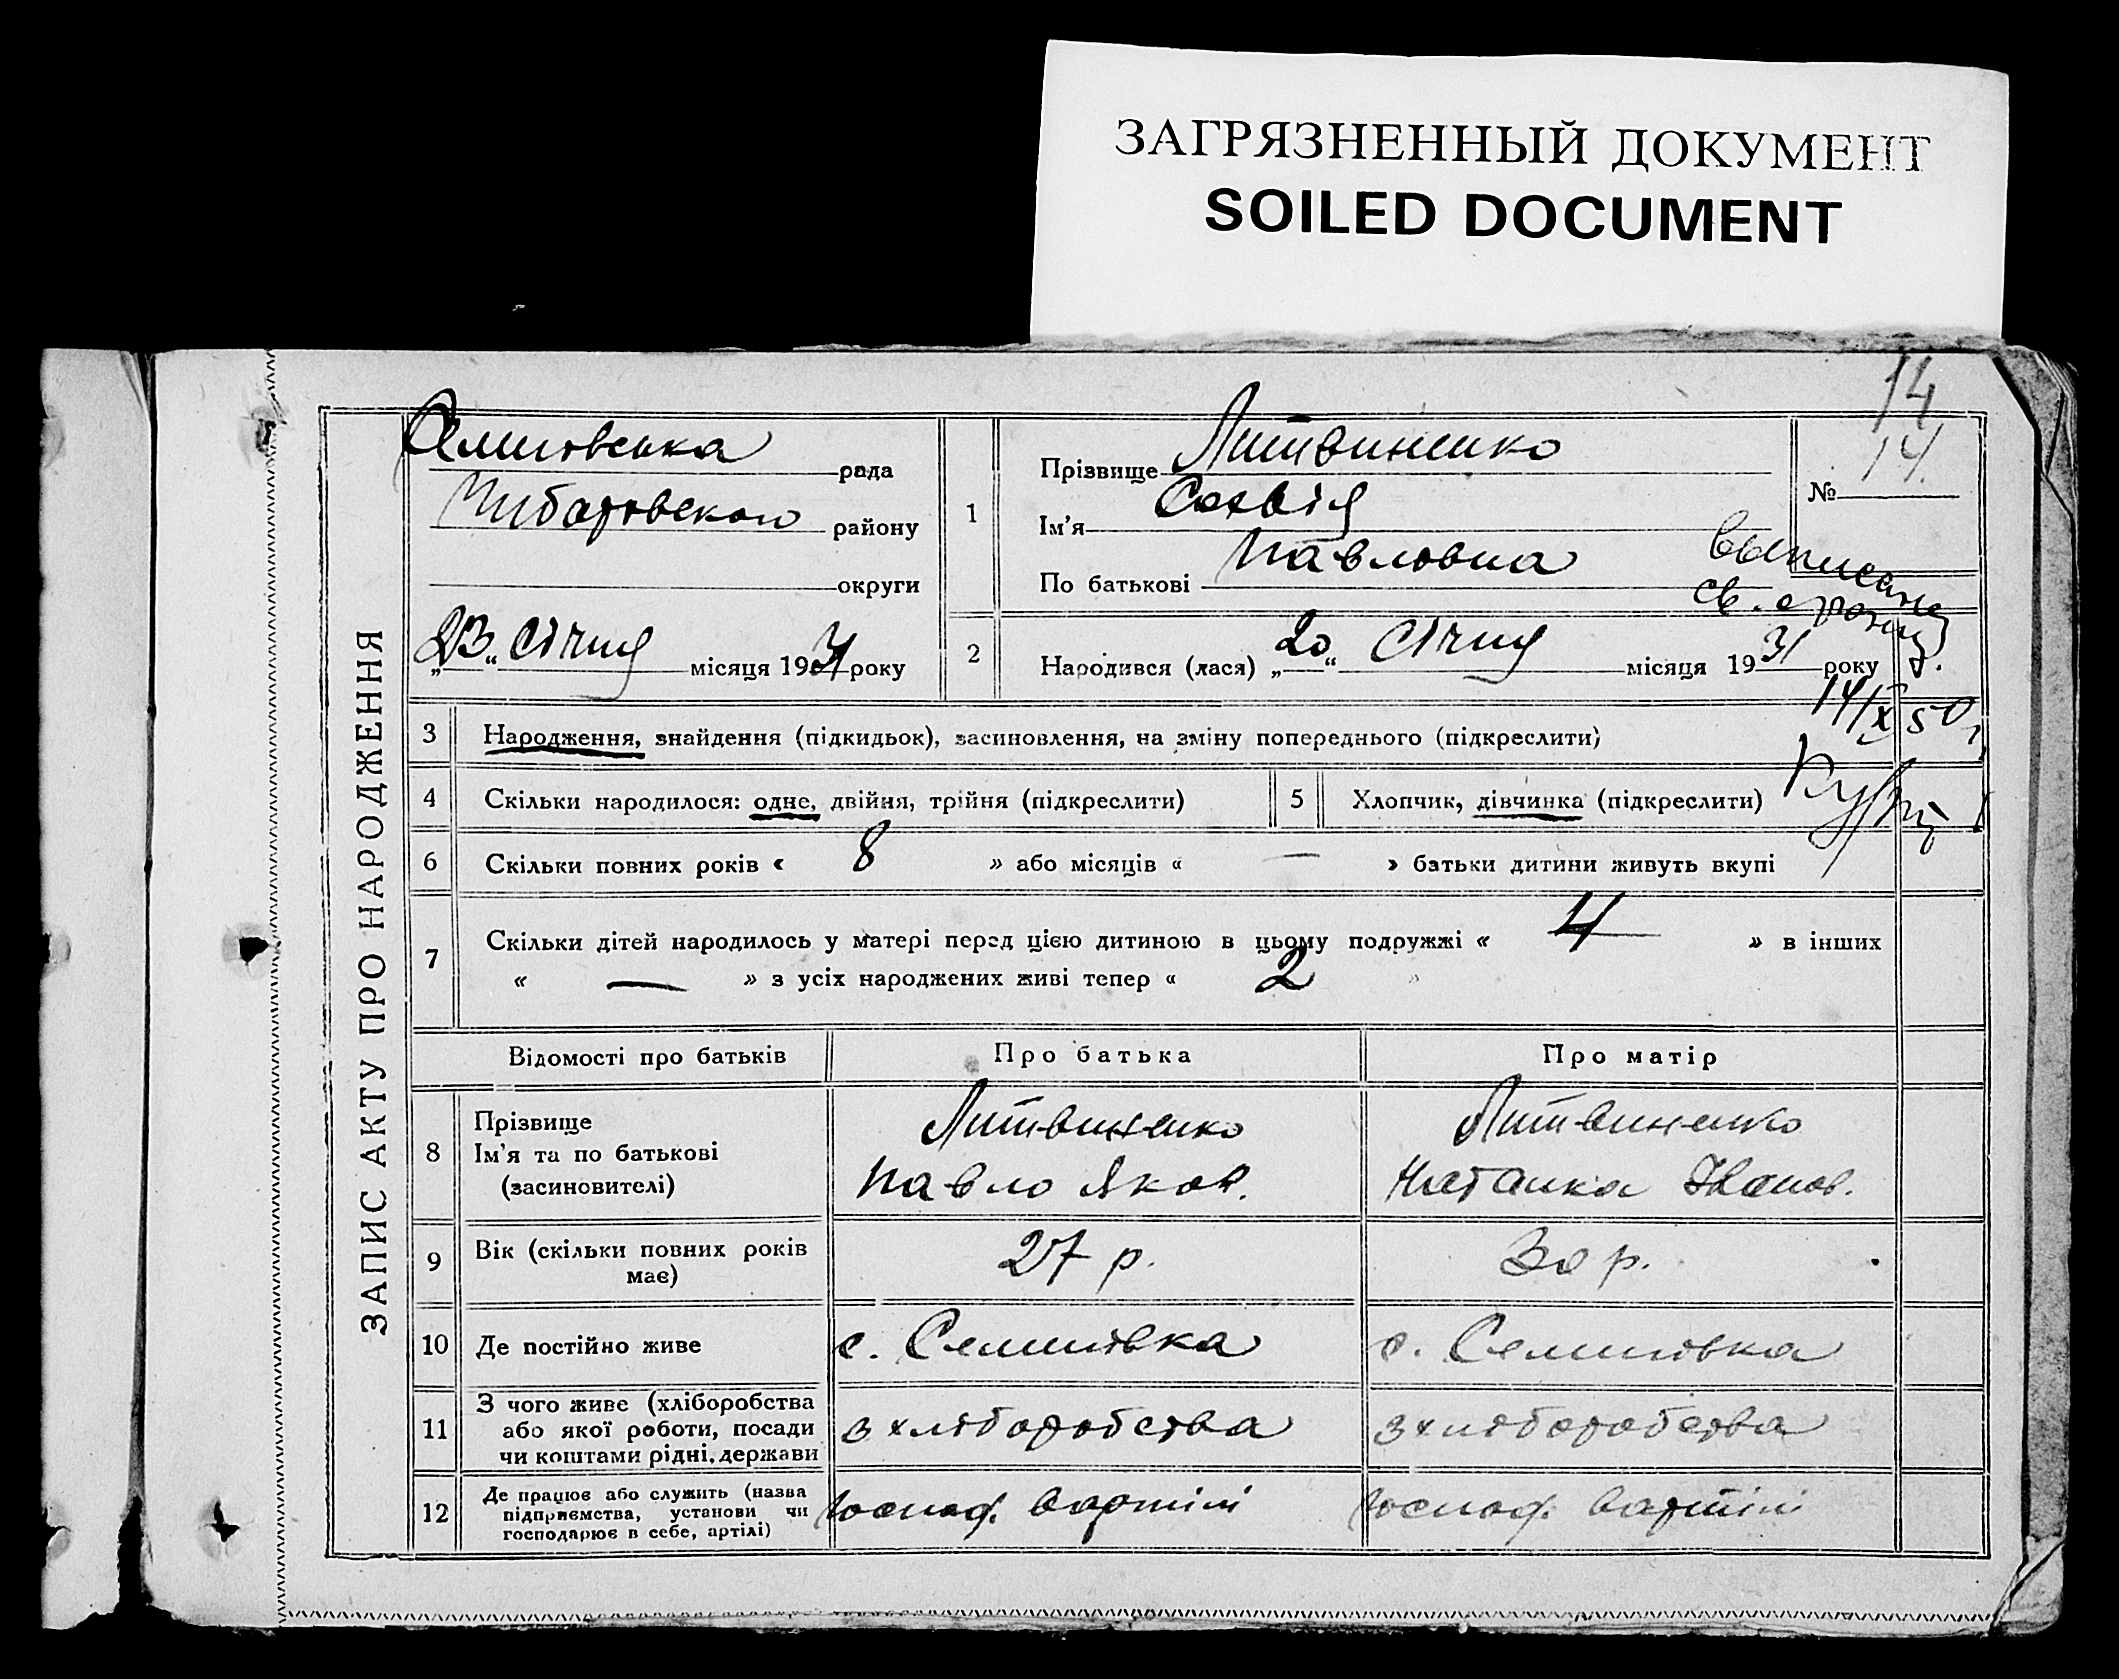 ЗАГРЯЗНЕННЫЙ ДОКУМЕНТ
SOILED DOCUMENT
14
ЗАПИС АКТУ ПРО НАРОДЖЕННЯ
рада
району
округи
„23“ січня місяця 1931 року
1
Прізвище Литвиненко
Ім'я Софія
По батькові Павловна
№ 14.
выписано
св. о рожд.
14/X 50 г.
2
Народився (лася) „20“ січня місяця 1931 року
3 Народження, знайдення (підкидьок), засиновлення, на зміну попереднього (підкреслити)
4 Скільки народилося: одне, двійня, трійня (підкреслити)
5 Хлопчик, дівчинка (підкреслити)
6 Скільки повних років « 8 » або місяців « — » батьки дитини живуть вкупі
7 Скільки дітей народилось у матері перед цією дитиною в цьому подружжі « 4 » в інших
« — » з усіх народжених живі тепер « 2 »
Відомості про батьків Про батька Про матір
8 Прізвище
Ім'я та по батькові
(засиновителі)
Литвиненко
Павло Яков.
Литвиненко
Наталка Іванов.
9 Вік (скільки повних років
має)
27 р.
30 р.
10 Де постійно живе
с. Семиївка
с. Семиївка
11 З чого живе (хліборобства
або якої роботи, посади
чи коштами рідні, держави
з хліборобства
з хліборобства
12 Де працює або служить (назва
підприємства, установи чи
господарює в себе, артілі)
господ. в артілі
господ. в артілі